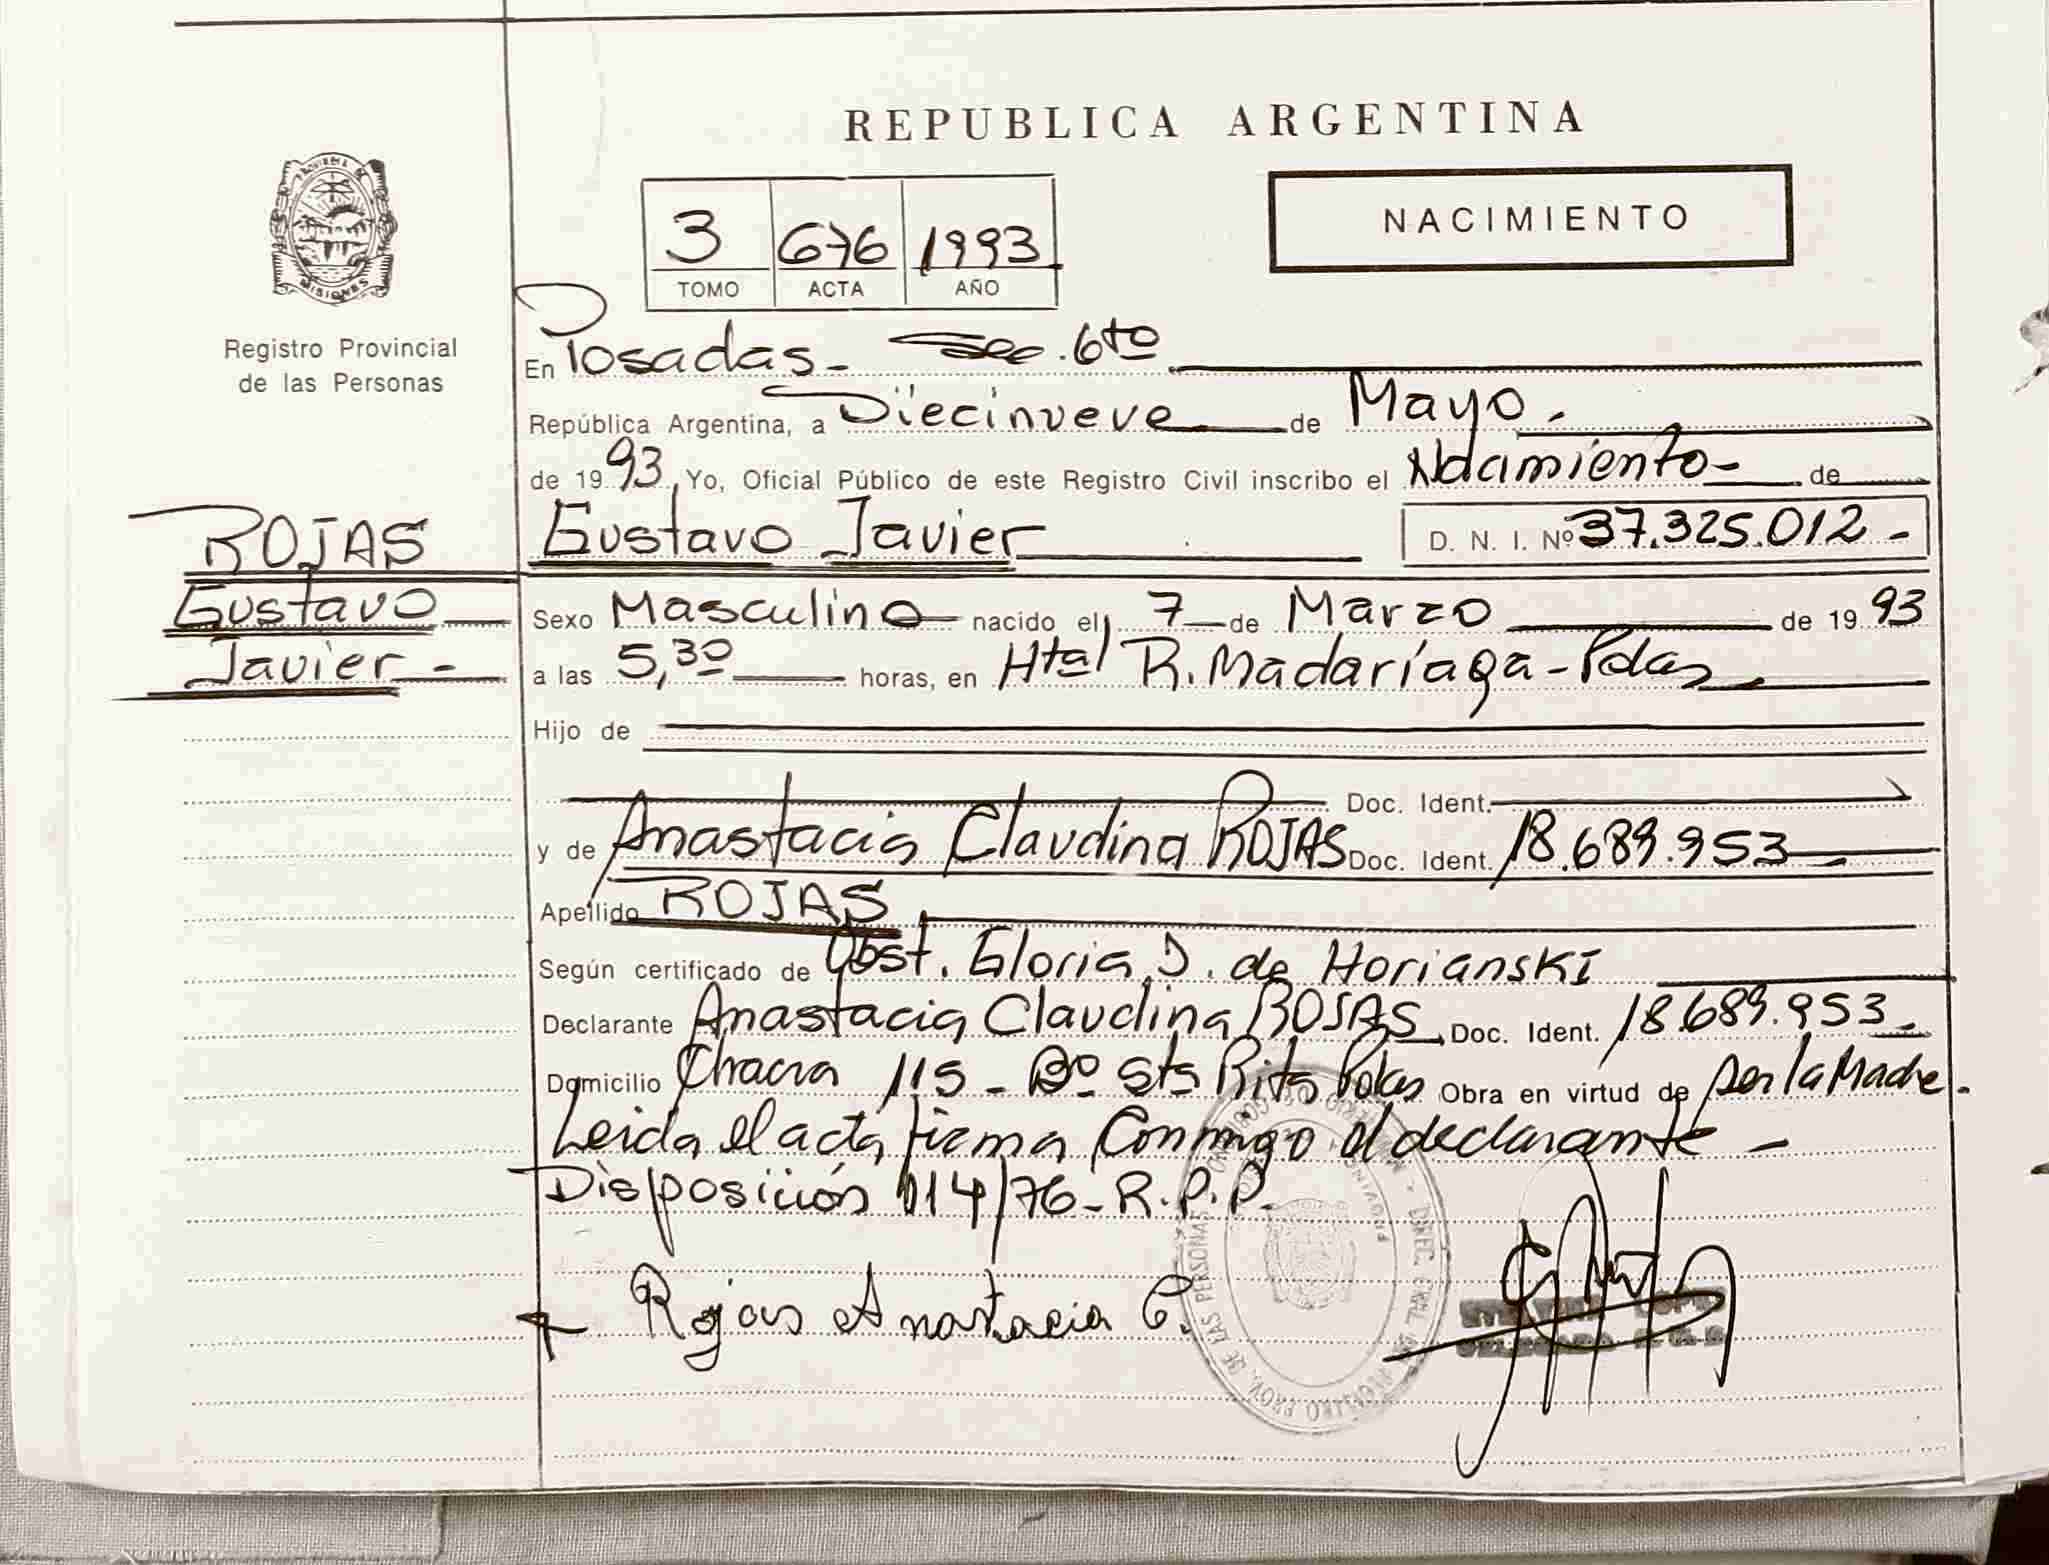 REPUBLICA ARGENTINA
PROVINCIA DE
MISIONES
Registro Provincial
de las Personas
3 676 1993
TOMO ACTA AÑO
NACIMIENTO
En Posadas- Sec. 6ta
República Argentina, a Diecinueve de Mayo.
de 1993, Yo, Oficial Público de este Registro Civil inscribo el Nacimiento- de
Gustavo Javier D. N. I. Nº 37.325.012-
ROJAS
Gustavo
Javier-
Sexo Masculino nacido el 7 de Marzo de 1993
a las 5,30 horas, en Htal R. Madariaga-Pdas
Hijo de
Doc. Ident.
y de Anastacia Claudina ROJAS Doc. Ident. 18.689.953
Apellido ROJAS
Según certificado de Obst. Gloria J. de Horianski
Declarante Anastacia Claudina ROJAS Doc. Ident. 18.689.953-
Domicilio Chacra 115- Bº Sta Rita Pdas Obra en virtud de ser la Madre.
Leida el acta firma Conmigo el declarante-
Disposición 114/76-R.P.P.
Rojas Anastacia C.